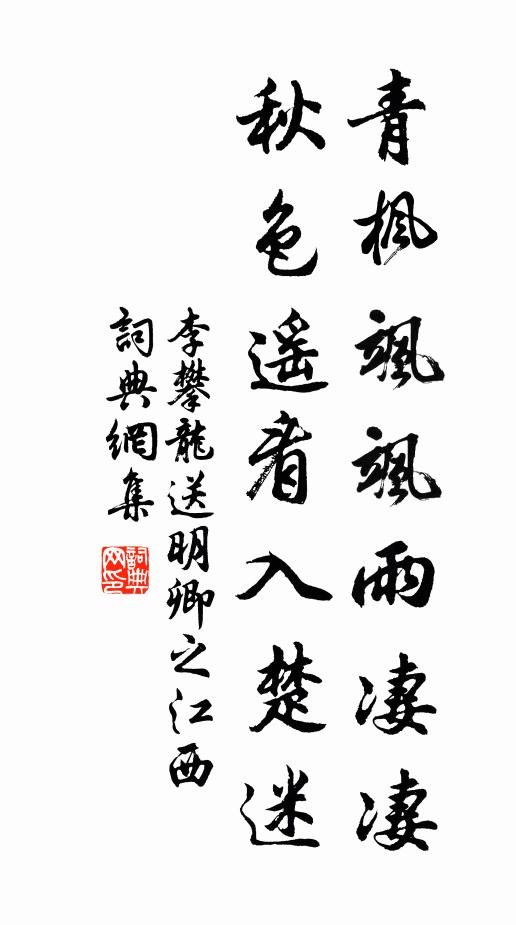 青楓颯颯雨凄凄
秋色遥看入楚迷
李攀龍送明卿之江西
詞典網集
詞典网印